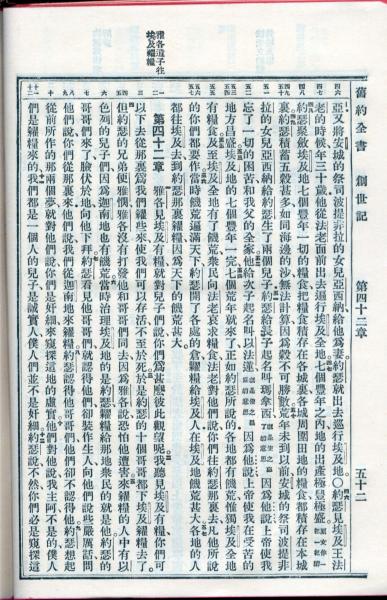 舊約全書 創世記 第四十二章 五十二
亞又將安城的祭司波提非拉的女兒亞西納給他爲妻約瑟就出去巡行埃及地○約瑟見埃及王法
老的時候年三十歲他從法老面前出去遍行埃及全地七個豐年之內地的出產極豐極盛
約瑟聚斂埃及地七個豐年一切的糧食把糧食積存在各城裏各城周圍田地的糧食都積存在本城
裏約瑟積蓄五穀甚多如同海邊的沙無法計算因爲穀不可勝數荒年未到以前安城的祭司波提非
拉的女兒亞西納給約瑟生了兩個兒子約瑟給長子起名叫瑪拿西因爲他說上帝使我
忘了一切的困苦和我父的全家他給次子起名叫以法蓮因爲他說上帝使我在受苦的
地方昌盛埃及地的七個豐年一完七個荒年就來了正如約瑟所說的各地都有饑荒惟獨埃及全地
有糧食及至埃及全地有了饑荒衆民向法老哀求糧食法老對他們說你們往約瑟那裏去凡他所說
的你們都要作當時饑荒遍滿天下約瑟開了各處的倉糶糧給埃及人在埃及地饑荒甚大各地的人
都往埃及去到約瑟那裏糴糧因爲天下的饑荒甚大
雅各遣子往
埃及糴糧
第四十二章 雅各見埃及有糧就對兒子們說你們爲甚麼彼此觀望呢我聽見埃及有糧你們可
以下去從那裏爲我們糴些來使我們可以存活不至於死於是約瑟的十個哥哥都下埃及糴糧去了
但約瑟的兄弟便雅憫雅各沒有打發他和哥哥們同去因爲雅各說恐怕他遭害來糴糧的人中有以
色列的兒子們因爲迦南地也有饑荒當時治理埃及地的是約瑟糶糧給那地衆民的就是他約瑟的
哥哥們來了臉伏於地向他下拜約瑟看見他哥哥們就認得他們卻裝作生人向他們說些嚴厲話問
他們說你們從那裏來他們說我們從迦南地來糴糧約瑟認得他哥哥們他們卻不認得他約瑟想起
從前所作的那兩個夢就對他們說你們是奸細來窺探這地的虛實他們對他說我主阿不是的僕人
們是糴糧來的我們都是一個人的兒子是誠實人僕人們並不是奸細約瑟說不然你們必是窺探這